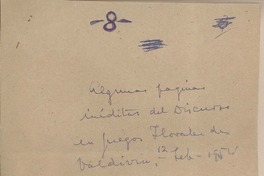 -8-
Algunas paginas
inéditas del Discurso
en Juegos Florales de
Valdivia, 12 Feb-